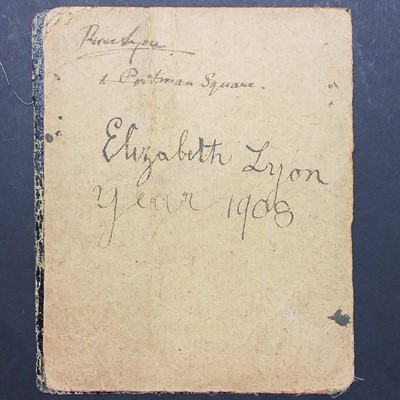 1 Portman Square.
Elizabeth Lyon
Year 1908